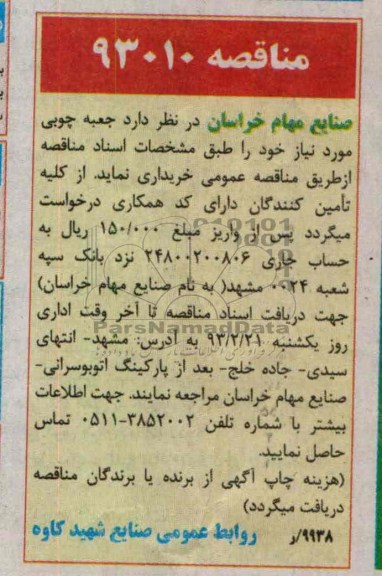 مناقصه ۹۳۰۱۰
صنایع مهام خراسان در نظر دارد جعبه چوبی
مورد نیاز خود را طبق مشخصات اسناد مناقصه
ازطریق مناقصه عمومی خریداری نماید. از کلیه
تأمین کنندگان دارای کد همکاری درخواست
میگردد پس از واریز مبلغ ۱۵۰/۰۰۰ ریال به
حساب جاری ۲۴۸۰۰۲۰۰۸۰۶ نزد بانک سپه
شعبه ۰۰۲۴ مشهد( به نام صنایع مهام خراسان)
جهت دریافت اسناد مناقصه تا آخر وقت اداری
روز یکشنبه ۹۳/۲/۲۱ به آدرس: مشهد- انتهای
سیدی- جاده خلج- بعد از پارکینگ اتوبوسرانی-
صنایع مهام خراسان مراجعه نمایند. جهت اطلاعات
بیشتر با شماره تلفن ۳۸۵۲۰۰۲-۰۵۱۱ تماس
حاصل نمایید.
(هزینه چاپ آگهی از برنده یا برندگان مناقصه
دریافت میگردد)
۹۹۳۸/ر روابط عمومی صنایع شهید کاوه
ParsNamadData